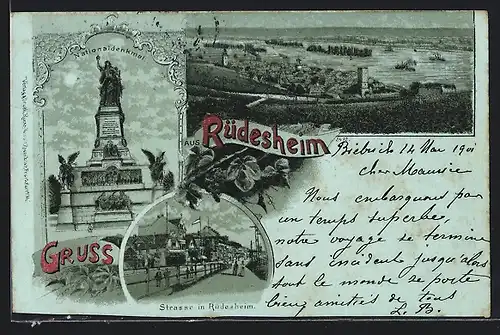 Nationaldenkmal
GRUSS
AUS
Rüdesheim
Strasse in Rüdesheim.
Biebrich 14 Mai 1901
Cher Maurice
Nous embarquons par
un temps superbe,
notre voyage se termine
sans incidents jusqu'alors
tout le monde se porte
bien amitiés de tous
L. B.